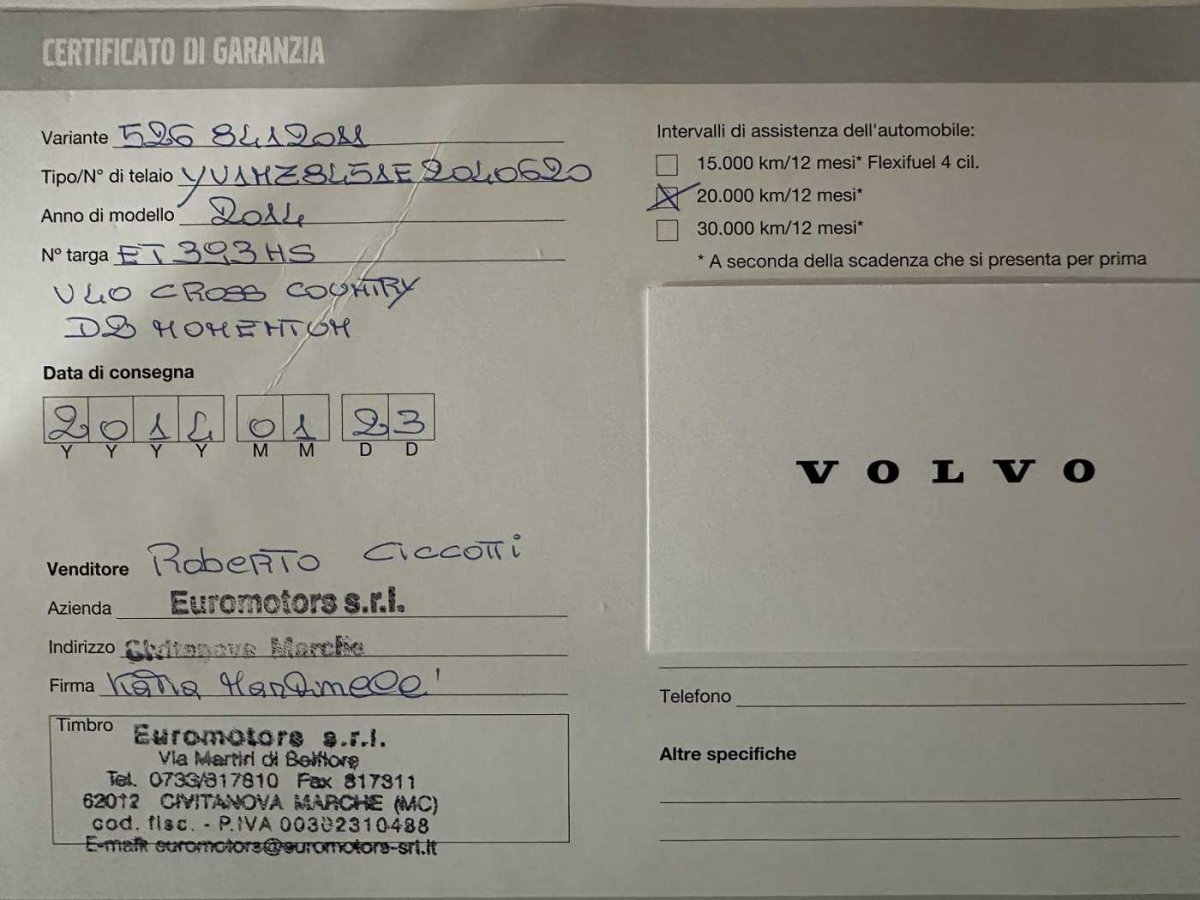 CERTIFICATO DI GARANZIA
Variante 526 8412011
Tipo/N° di telaio YV1MZ8451E2040620
Anno di modello 2014
N° targa ET 393 HS
V40 CROSS COUNTRY
D2 MOMENTUM
Data di consegna
2014 01 23
Y Y Y Y M M D D
Venditore Roberto Ciccotti
Azienda Euromotors s.r.l.
Indirizzo Civitanova Marche
Firma Katia
Timbro
Euromotors s.r.l.
Via Martiri di Belfiore
Tel. 0733/817810 Fax 817311
62012 CIVITANOVA MARCHE (MC)
cod. fisc. - P.IVA 00302310438
E-mail: euromotors@euromotors-srl.it
Intervalli di assistenza dell'automobile:
15.000 km/12 mesi* Flexifuel 4 cil.
20.000 km/12 mesi*
30.000 km/12 mesi*
* A seconda della scadenza che si presenta per prima
VOLVO
Telefono
Altre specifiche